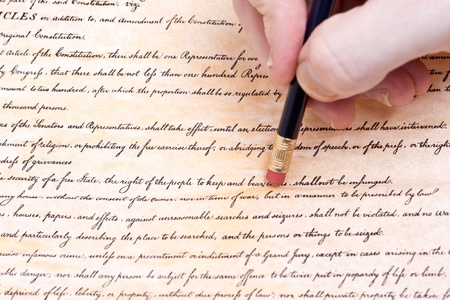 as part of the said Constitution, viz;
CLES in addition to, and amendment of the Constitution
original Constitution.
st Article of the Constitution, there shall be one Representative for eve
by Congress, that there shall be not less than one hundred Repres
amount to two hundred, after which the proportion shall be so regulated by
thousand persons.
es of the Senators and Representatives, shall take effect, until an election Representatives shall have intervened.
shment of religion, or prohibiting the free exercise thereof; or abridging dom of speech, or of the press, or the right
redress of grievances
e security of a free State, the right of the people to keep and bear shall not be infringed.
any house, without the consent of the owner, nor in time of war, but in a manner to be prescribed by law
s, houses, papers, and effects, against unreasonable searches and seizures, shall not be violated, and no Wa
and particularly describing the place to be searched, and the persons or things to be seized.
wise infamous crime, unless on a presentment or indictment of a Grand Jury, except in cases arising in the
ublic danger; nor shall any person be subject for the same offence to be twice put in jeopardy of life or limb
be deprived of life, liberty, or property, without due process of law; nor shall private property be taken for